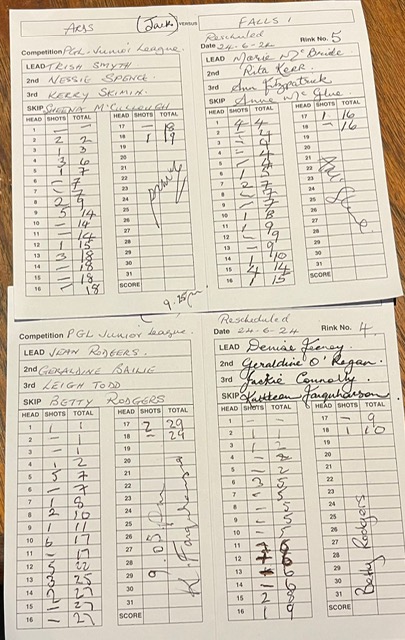 ARDS (Jack) VERSUS FALLS 1
Competition PGL Junior League.
LEAD TRISH SMYTH
2nd NESSIE SPENCE
3rd KERRY SKIMIN
SKIP SHEENA McCULLOUGH
HEAD SHOTS TOTAL HEAD SHOTS TOTAL
1 – – 17 – 18
2 2 2 18 1 19
3 1 3 19
4 3 6 20
5 1 7 21
6 – 7 22
7 – 7 23
8 2 9 24
9 5 14 25
10 – 14 26
11 – 14 27
12 1 15 28
13 3 18 29
14 – 18 30
15 – 18 31
16 – 18 SCORE
Rescheduled
Date 24-6-24 Rink No. 5
LEAD Marie McBride
2nd Rita Kerr.
3rd Ann Fitzpatrick
SKIP Anne McGlue
HEAD SHOTS TOTAL HEAD SHOTS TOTAL
1 4 4 17 1 16
2 – 4 18 – 16
3 – 4 19
4 – 4 20
5 – 4 21
6 1 5 22
7 2 7 23
8 – 7 24
9 – 7 25
10 1 8 26
11 1 9 27
12 – 9 28
13 – 9 29
14 1 10 30
15 4 14 31
16 1 15 SCORE
9.15pm
Competition PGL Junior League.
LEAD JEAN RODGERS.
2nd GERALDINE BAILIE
3rd LEIGH TODD
SKIP BETTY RODGERS
HEAD SHOTS TOTAL HEAD SHOTS TOTAL
1 1 1 17 2 29
2 – 1 18 – 29
3 – 1 19
4 1 2 20
5 5 7 21
6 – 7 22
7 1 8 23
8 2 10 24
9 1 11 25
10 6 17 26
11 – 17 27
12 5 22 28
13 3 25 29
14 2 27 30
15 – 27 31
16 – 27 SCORE
9.05pm
K. Farquharson
Rescheduled
Date 24-6-24 Rink No. 4.
LEAD Denise Feeney
2nd Geraldine O'Regan.
3rd Jackie Connolly.
SKIP Kathleen Farquharson
HEAD SHOTS TOTAL HEAD SHOTS TOTAL
1 – – 17 – 9
2 – – 18 1 10
3 1 2 19
4 – 2 20
5 – 2 21
6 3 5 22
7 – 5 23
8 – 5 24
9 – 5 25
10 – 5 26
11 27
12 28
13 29
14 – 6 30
15 2 8 31
16 1 9 SCORE
Betty Rodgers